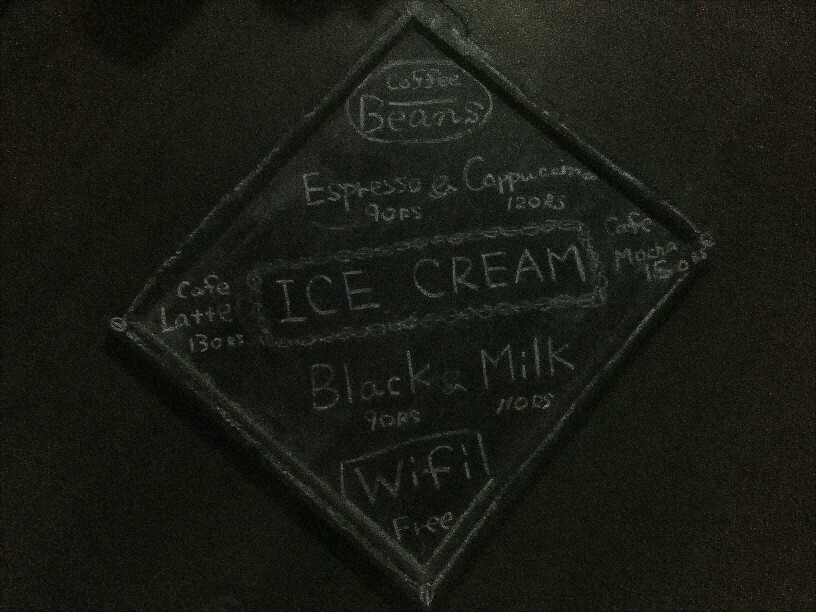 Coffee
Beans
Espresso & Cappuccino
90RS 120RS
Cafe
Mocha
150RS
ICE CREAM
Cafe
Latte
130RS
Black & Milk
90RS 110RS
Wifi
Free